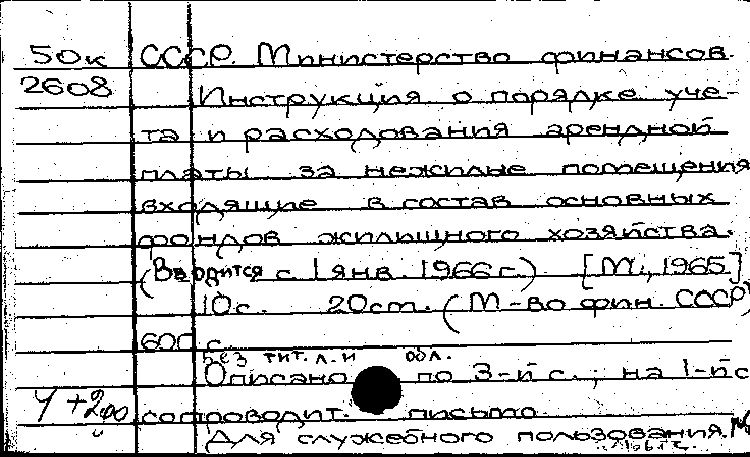 50к СССР. Министерство финансов.
2608 Инструкция о порядке уче-
та и расходования арендной
платы за нежилые помещения
входящие в состав основных
фондов жилищного хозяйства.
(Вводится с 1 янв. 1966 г.) [М., 1965]
10с. 20 cm. (М-во фин. СССР)
600 с.
Без тит. л. и обл.
Описано по 3-й с.; на 1-й с
4 +2 сопроводит. письмо
Для служебного пользования.